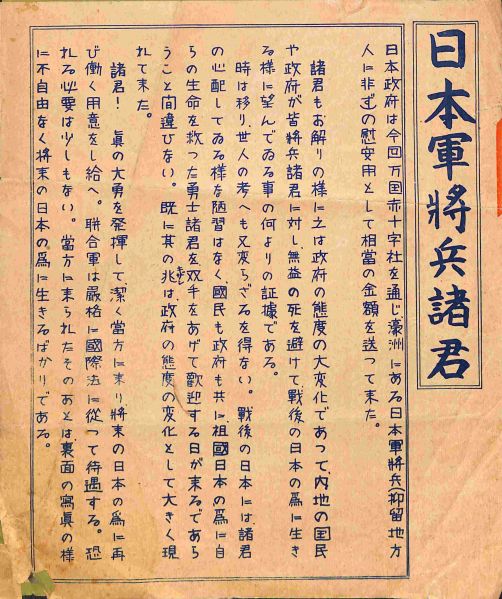 日本軍將兵諸君
日本政府は今回万国赤十字社を通じ濠洲にある日本軍將兵(抑留地方
人に非ず)の慰安用として相當の金額を送つて来た。
諸君もお解りの様に之は政府の態度の大変化であつて、内地の国民
や政府が皆將兵諸君に対し、無益の死を避けて戦後の日本の爲に生き
る様に望んでゐる事の何よりの証據である。
時は移り、世人の考へも又変らざるを得ない。戰後の日本には諸君
の心配してゐる様な陋習はなく、國民も政府も共に祖國日本の爲に自
らの生命を救つた勇士諸君を双手をあげて歡迎する日が来るであら
うこと間違ひない。既に其の兆は、政府の態度の変化として大きく現
れて来た。
諸君! 眞の大勇を発揮して潔く當方に来り將来の日本の爲に再
び働く用意をし給へ。聯合軍は嚴格に國際法に從つて待遇する。恐
れる必要は少しもない。當方に来られたそのあとは、裏面の寫眞の様
に不自由なく將来の日本の爲に生きるばかりである。